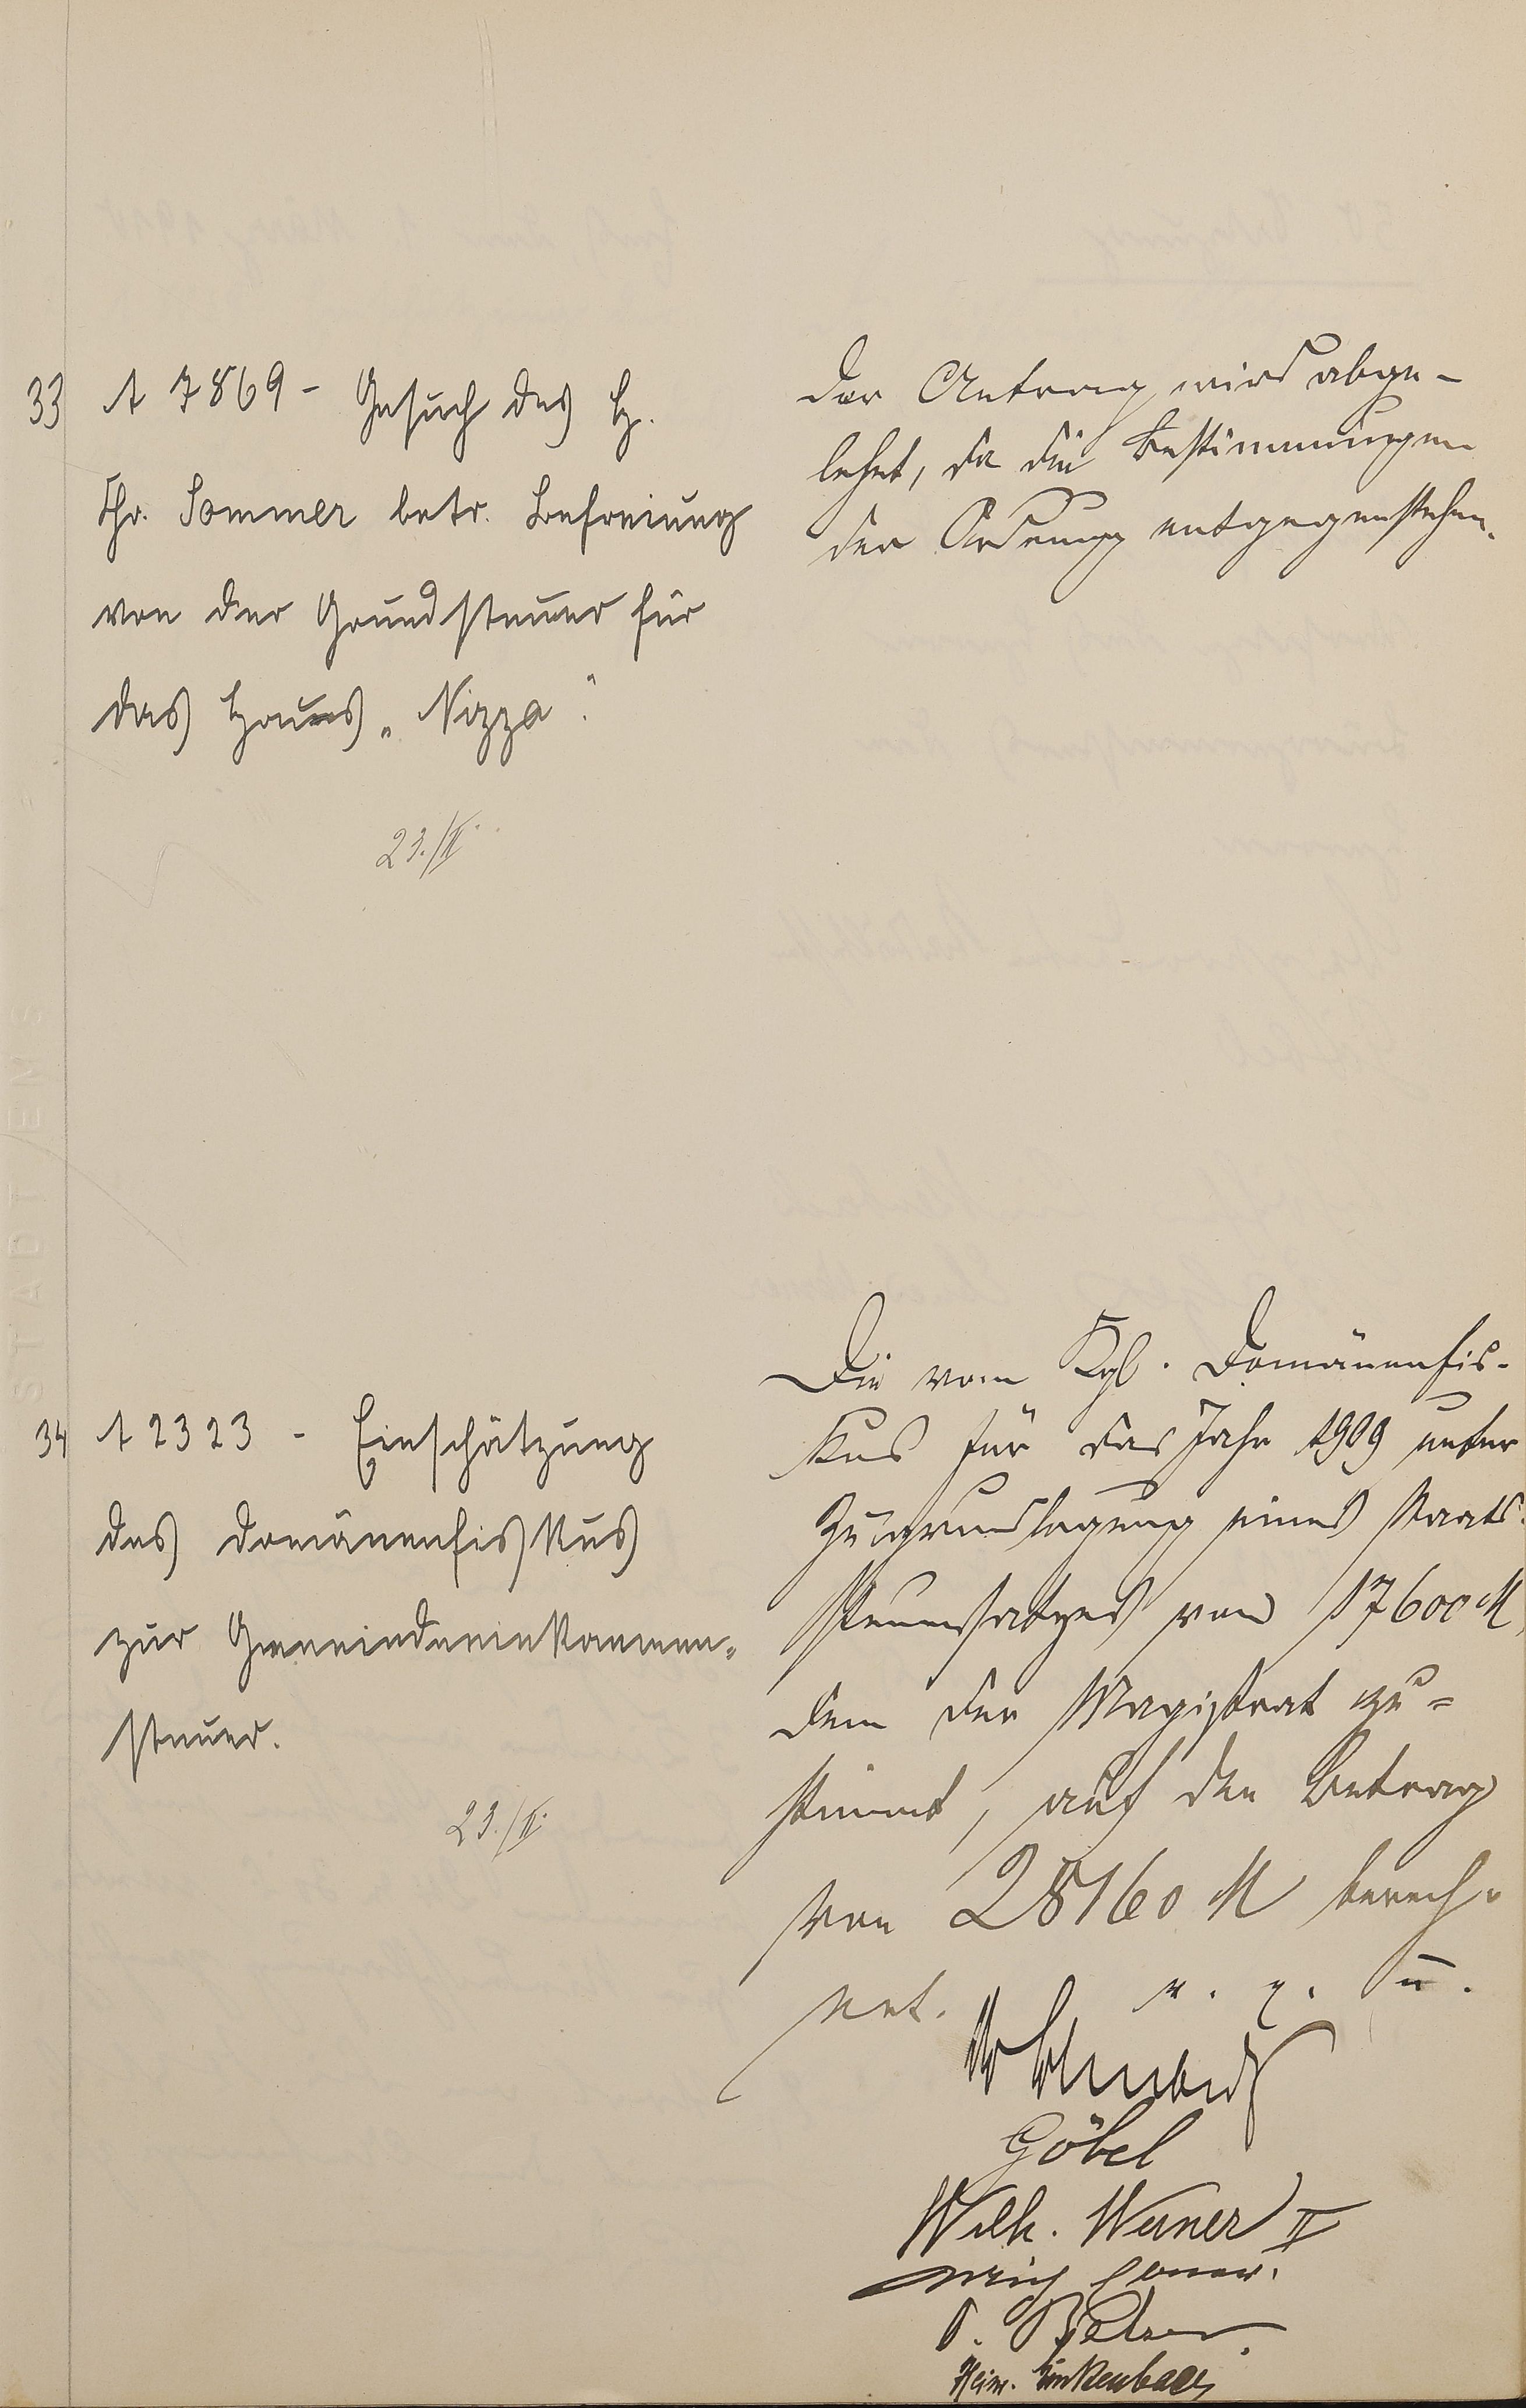 33 A 7869 - Gesuch des H.
Chr. Sommer betr. Befreiung
von der Grundsteuer für
das Haus „Nizza".
23./II.
Der Antrag wird abge-
lehnt, da die Bestimmungen
der Ordnung entgegenstehen.
34 A 2323 - Einschätzung
des Domänenfiskus
zur Gemeindeeinkommen-
steuer.
23./II.
Die vom Kgl. Domänenfis-
kus für das Jahr 1909 unter
Zugrundlagung eines Staats-
steuersatzes von 17600 M,
dem der Magistrat zu-
stimmt, auf den Betrag
von 28160 M berech-
net. v. g. u.
Göbel
Wilh. Werner II
Heinr. Linkenbach
STADT EMS